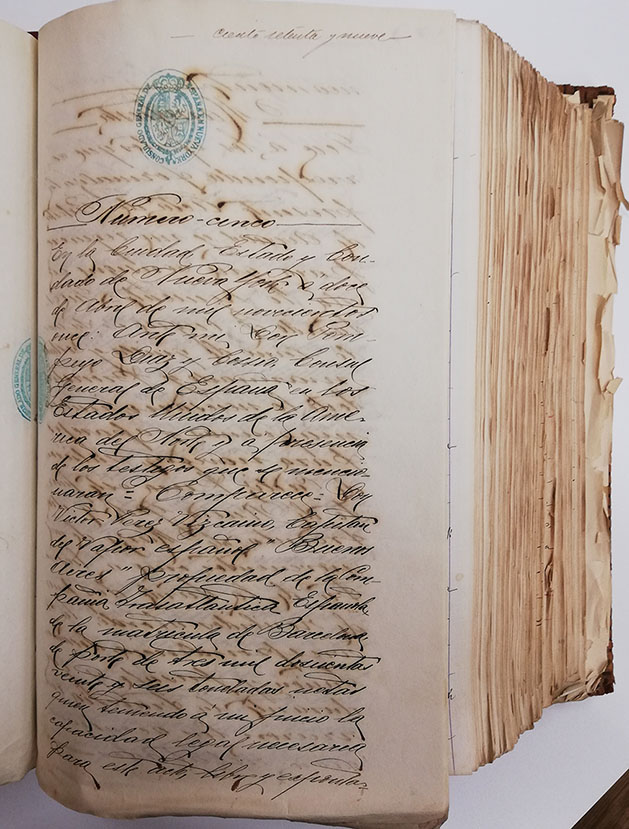 ciento setenta y nueve
CONSULADO GENERAL DE ESPAÑA EN NUEVA YORK
Número cinco
En la Ciudad, Estado y Con-
dado de Nueva York a doce
de Abril de mil novecientos
once: Ante mi Don Pom-
peyo Diaz y Cossio, Consul
General de España en los
Estados Unidos de la Ame-
rica del Norte y a presencia
de los testigos que se mencio-
naran = Comparece = Don
Victor Perez Vizcaino, Capitan
del vapor español "Buenos
Aires" propiedad de la Com-
pañia Trasatlantica Española
de la matricula de Barcelona
de porte de tres mil doscientas
veinte y seis toneladas netas
quien teniendo á mi juicio la
capacidad legal necesaria
para este acto, libre y esponta-